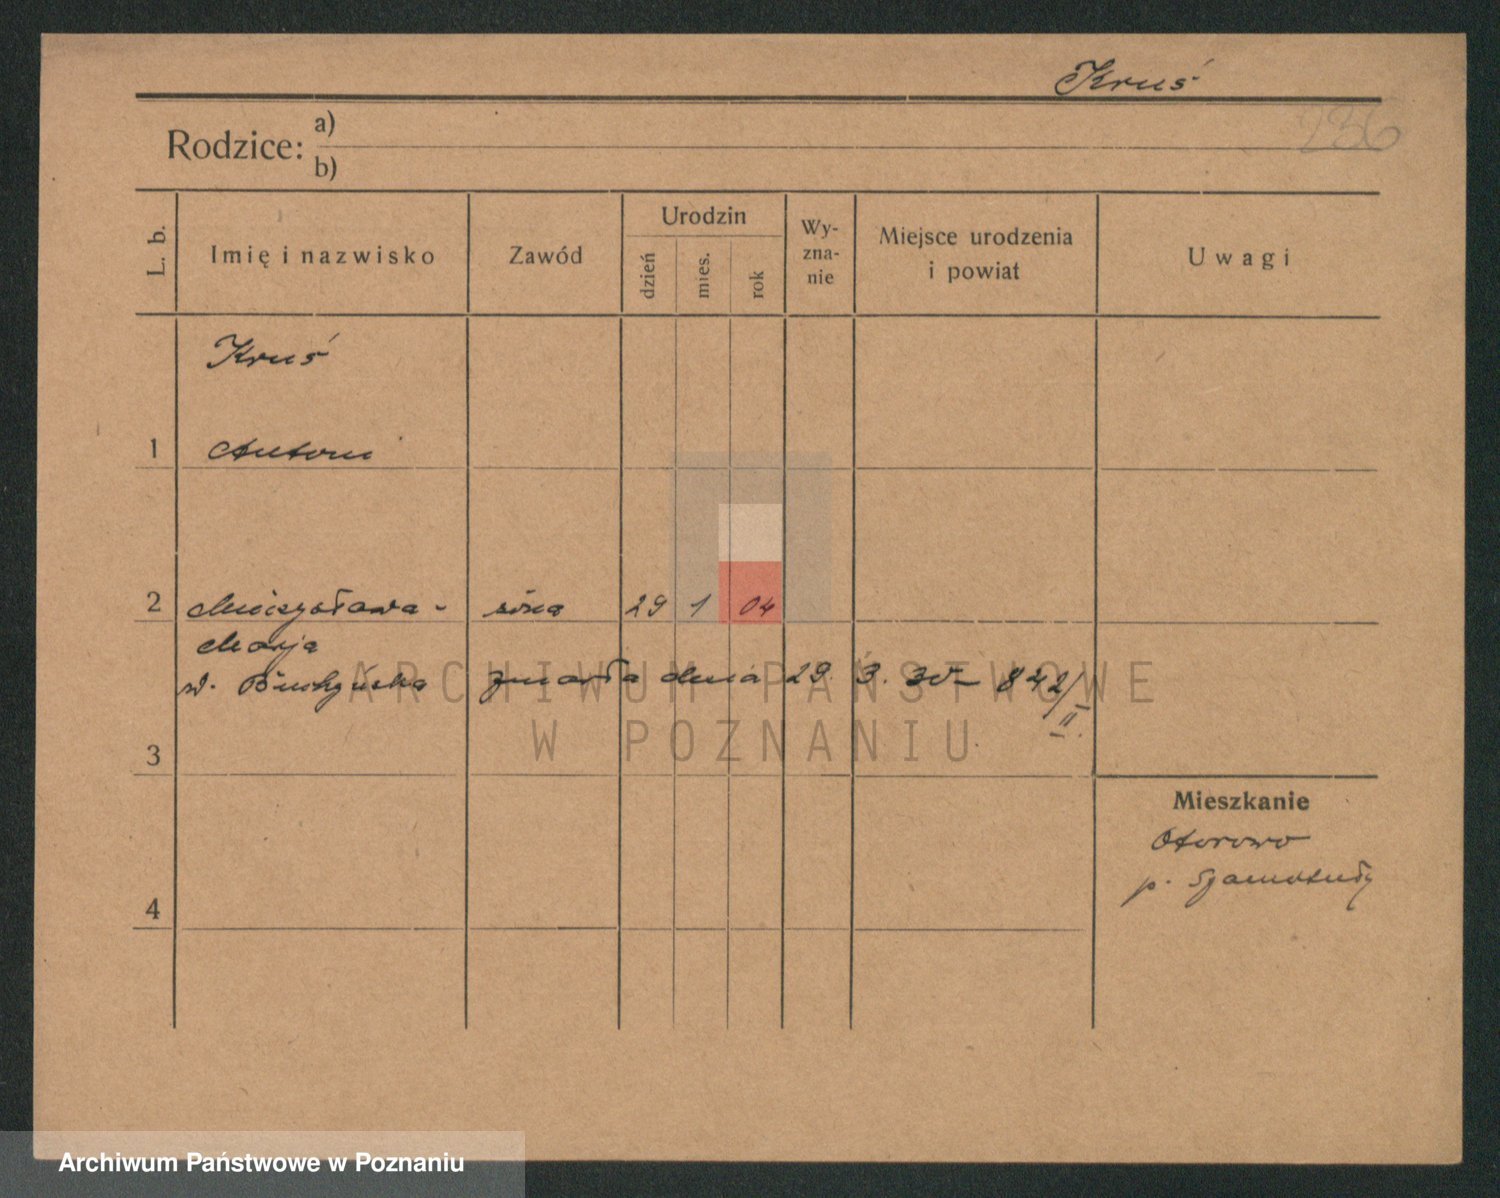 Kruś
236
Rodzice: a)
b)
L. b. Imię i nazwisko Zawód Urodzin dzień mies. rok Wy-zna-nie Miejsce urodzenia i powiat Uwagi
Kruś
1 Antoni
2 Mieczysława - żona 29 1 04
Marja
zmarła dnia 29. 3. 35 - 842/II.
3
Mieszkanie
Otorowo
p. Szamotuły
4
ARCHIWUM PAŃSTWOWE
W POZNANIU
Archiwum Państwowe w Poznaniu